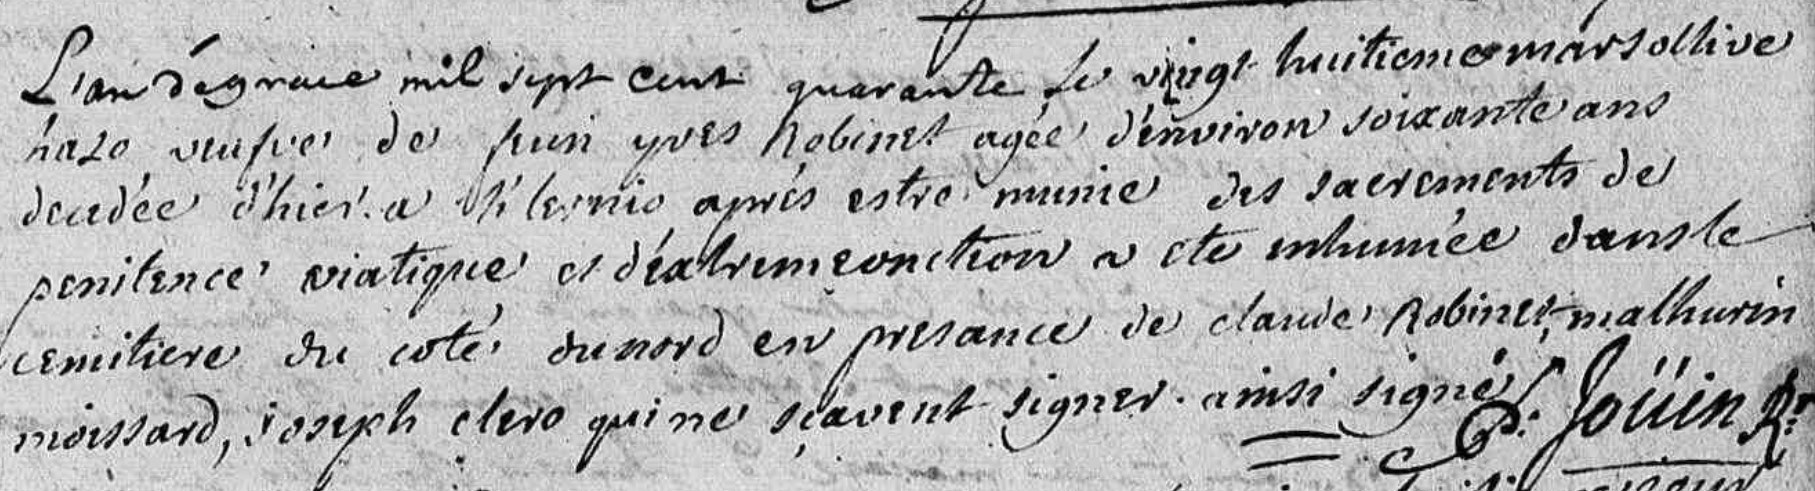 L'an de grace mil sept cent quarante le vingt huitieme mars ollive
hazo veufve de feun yves Robinet agée d'environ soixante ans
decedée d'hier a après estre munie des sacrements de
penitence viatique et d'extremeonction a ete inhumée dans le
cemitiere du coté du nord en presance de claude Robinet, mathurin
moissard, joseph clero qui ne sçavent signer. ainsi signé P. Joüin Rr